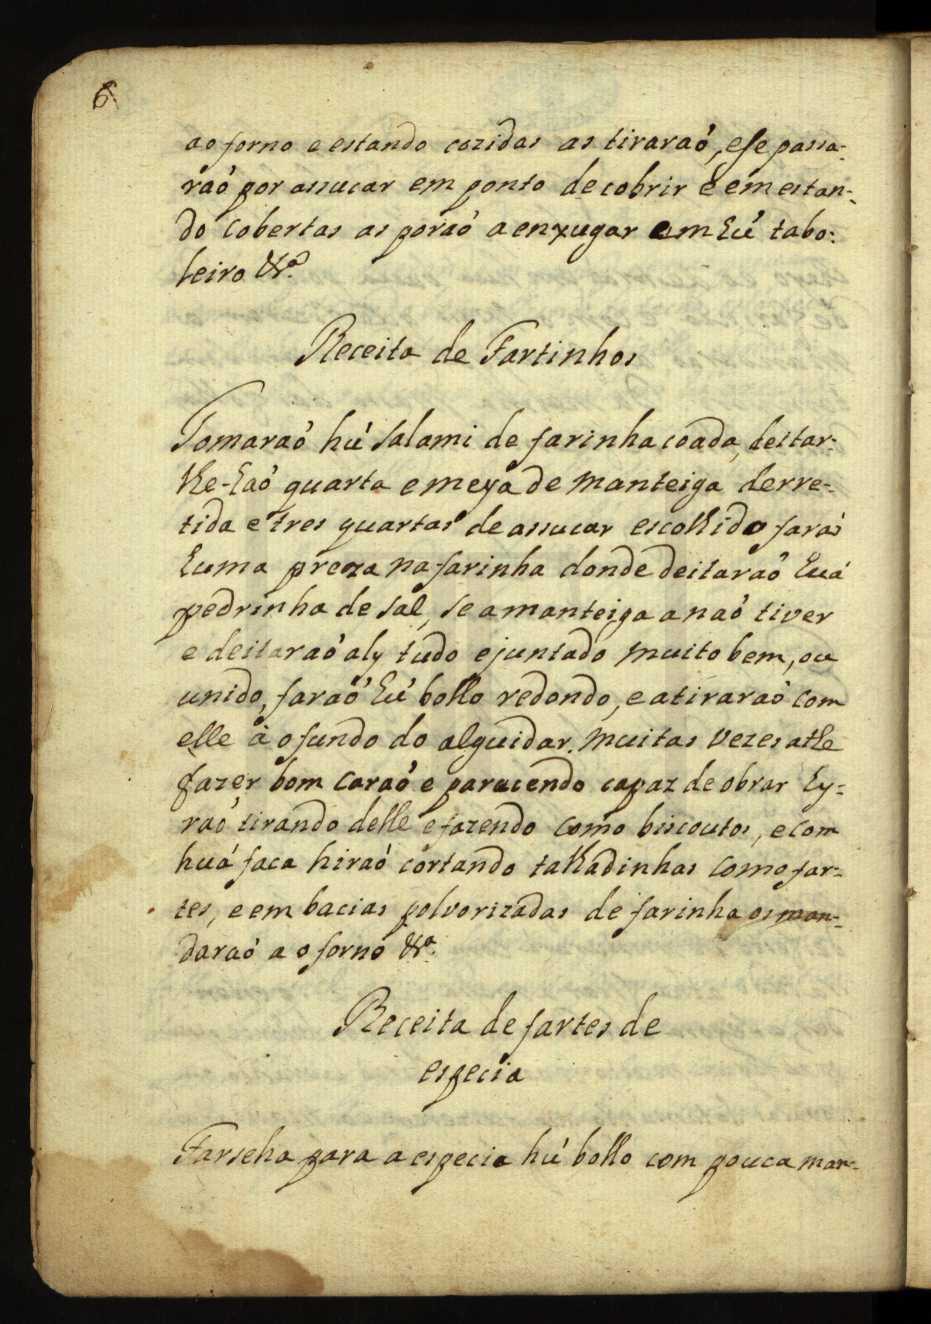 6
ao forno e estando cozidas as tiraraó, e se passa-
raó por assucar em ponto de cobrir e em estan-
do cobertas as poraó a enxugar em hú tabo-
leiro &ª
Receita de Fartinhos
Tomaraó hú salami de farinha coada, deitar-
lhe-haó quarta e meya de manteiga derre-
tida e tres quartas de assucar escolhido faraó
huma preza na farinha donde deitaraó huá
pedrinha de sal, se a manteiga a naó tiver
e deitaraó aly tudo e juntado muito bem, ou
unido, faraó hú bollo redondo, e atiraraó com
elle à o fundo do alguidar muitas vezes athe
fazer bom caraó e parecendo capaz de obrar hy-
raó tirando delle e fazendo como biscoutos, e com
huá faca hiraó cortando talhadinhas como far-
tes, e em bacias polvorizadas de farinha os man-
daraó a o forno &ª
Receita de fartes de
especia
Farseha para a especia hú bollo com pouca man-